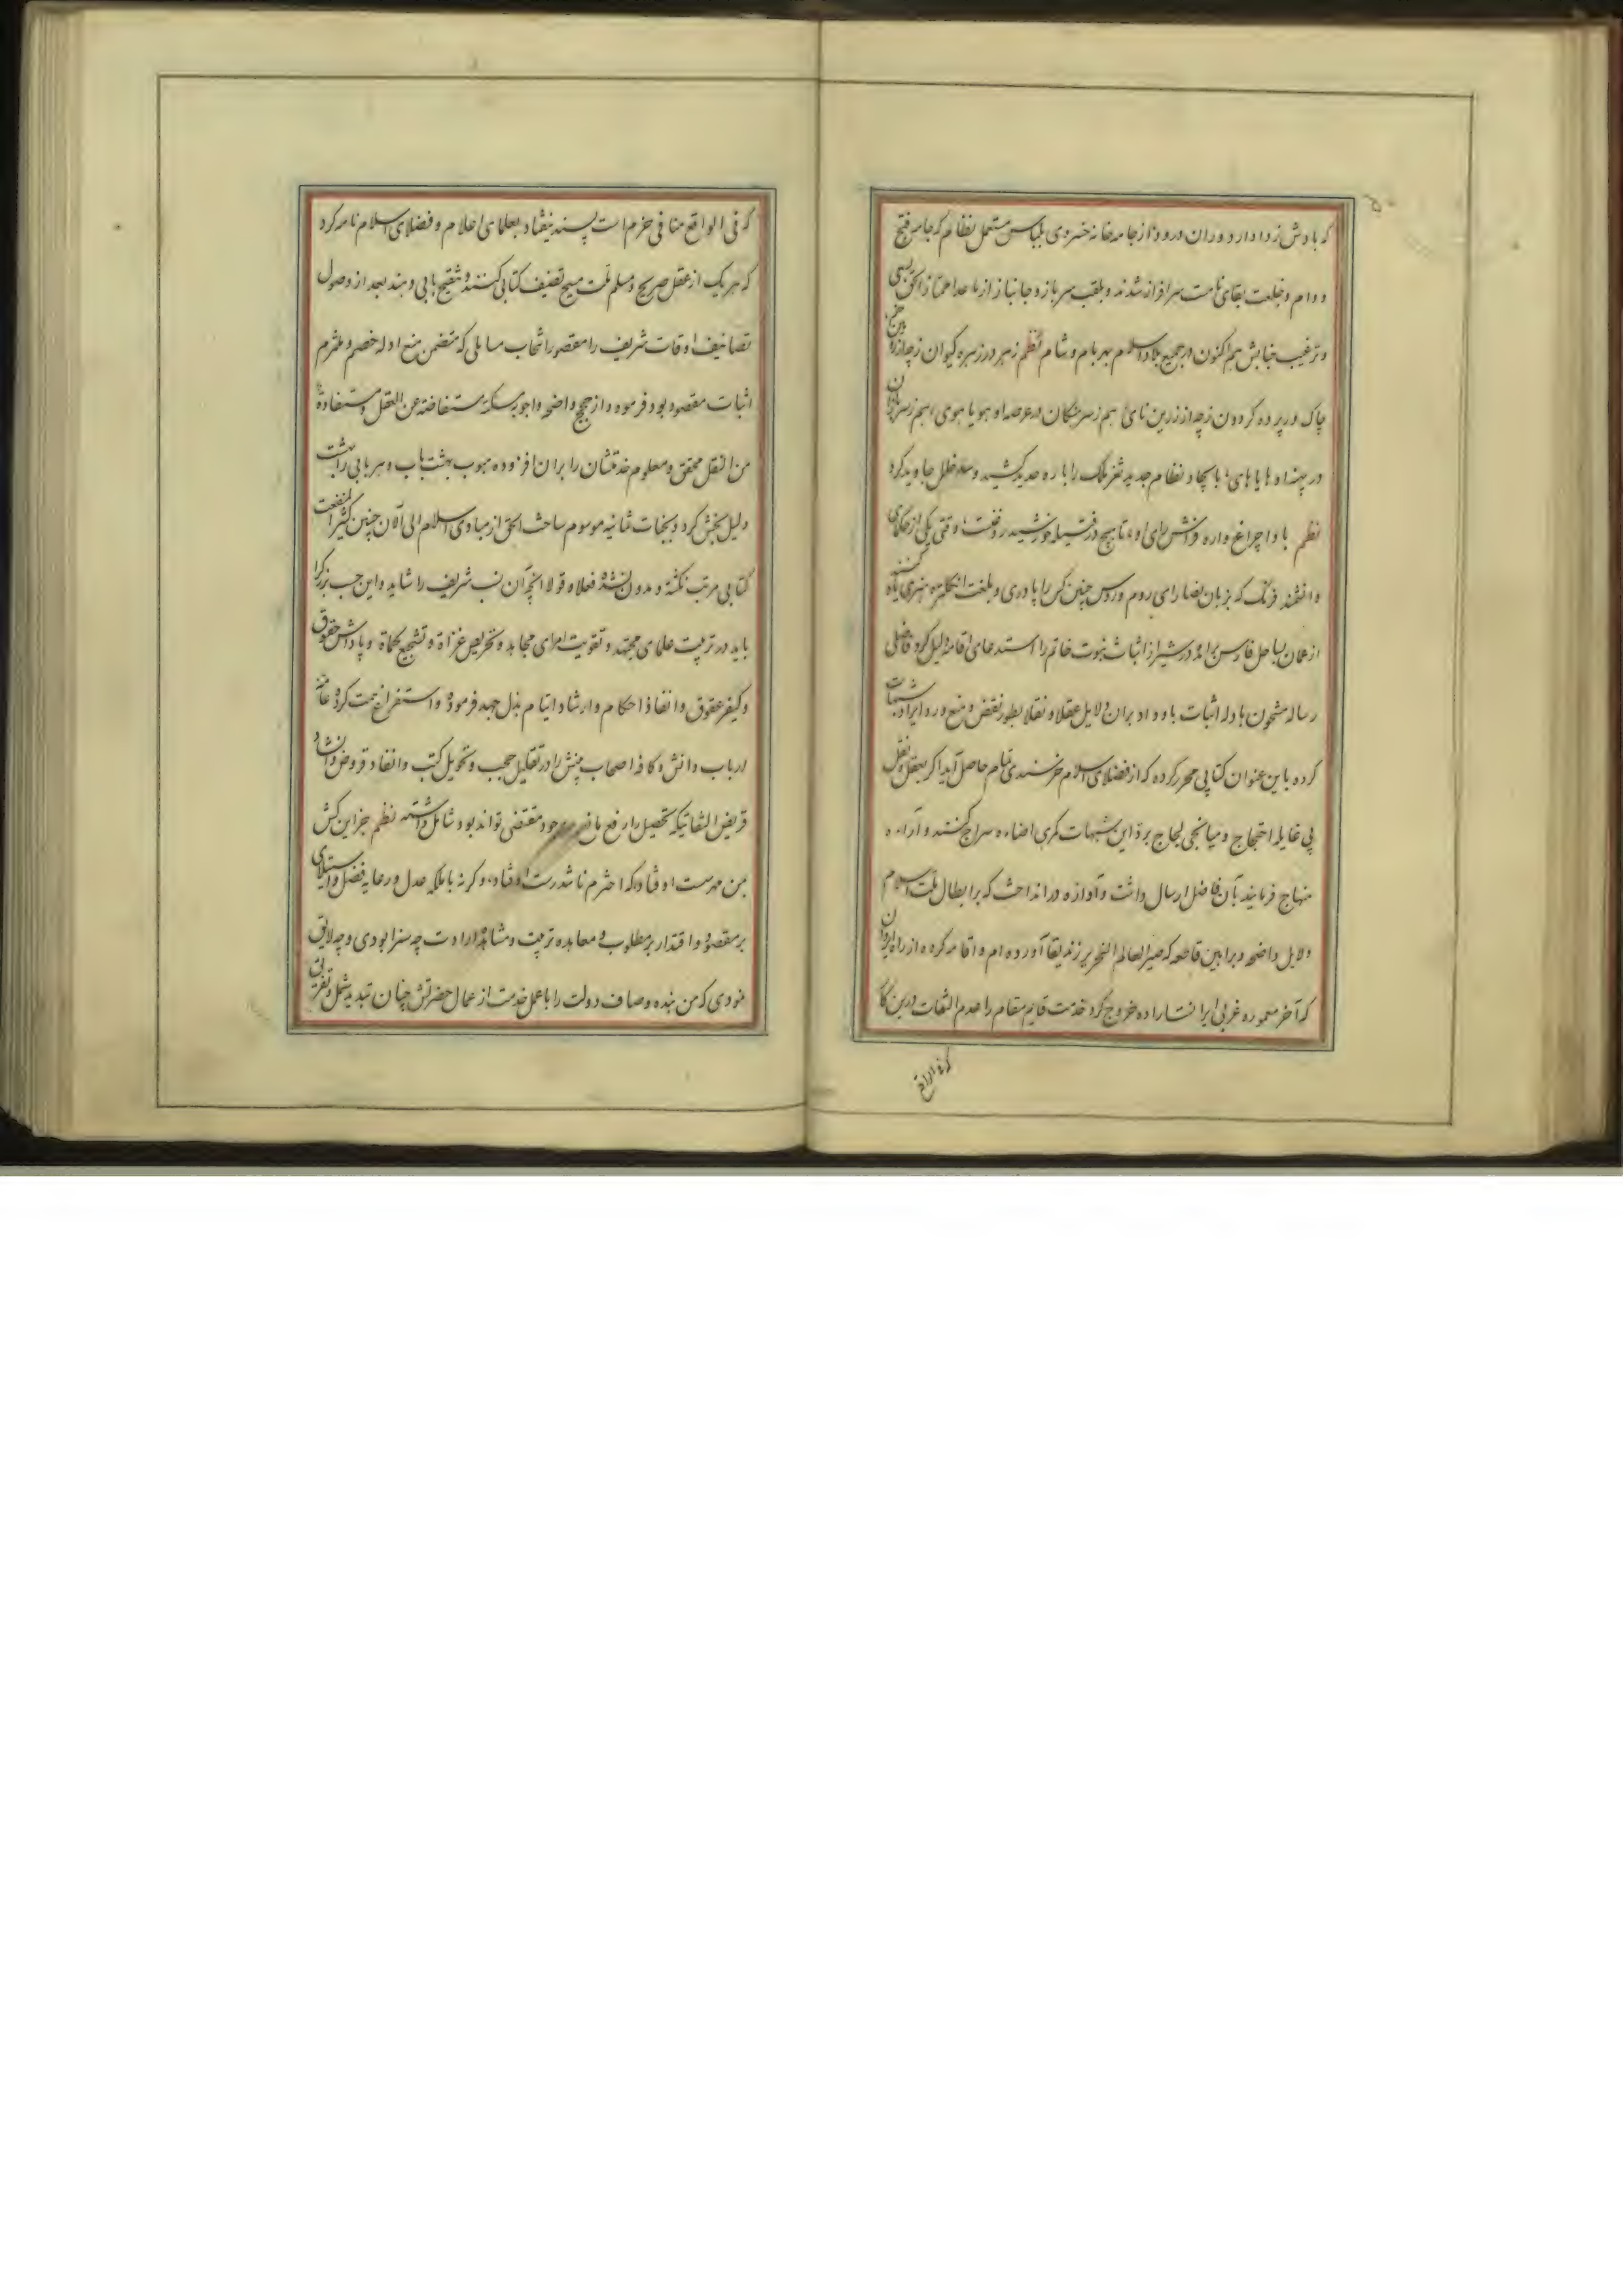 که بادش ز دادار دوران درود از جامه خانه خسروی بلباس مشتمل نظام که جامه فتح
و دوام و خلعت بقای تامست سرافراز شدند و بلقب سرباز و جانباز از ما عدا ممتاز الحق بسعی
و ترغیب جنابش هم اکنون در جمیع بلاد اسلام بهر بام و شام نظم زهره در زهره کیوان ز چه از
چاک در پرده گردون ز چه از زرین نای هم ز سرهنگان در عرصه او هویا هوی هم ز سربازان
در پهنه او هایاهای با ایجاد نظام جدید ثغر ملک را باره حدید کشید و سد خلل جاوید کرد
نظم باد چراغ واره فراش رای او تا هیچ در فتیله خورشید روغنست وقتی یکی از حکمای
دانشمند فرنگ که بزبان نصارای روم و روس چنین کس را پادری و بلغت انگلیس هنری
از عمان بساحل فارس برآمد در شیراز اثبات نبوت خاتم را استدعای اقامه دلیل کرد فاضلی
رساله مشحون بادله اثبات باو داد بران دلایل عقلا و نقلا بطور نقض و منع و رد ایراد شبهات
کرده باین عنوان کتابی محرر کرده که از فضلای اسلام خرسندی تمام حاصل آید اگر بعقل و نقل
بی غایله احتجاج و میانجی لجاج برد این شبهات کمری اضاءه سراج کنند و اراءه
منهاج فرمایند بآن فاضل ارسال داشت و آوازه در انداخت که بر ابطال ملت اسلام
دلایل واضحه و براهین قاطعه که صیر العالم النحریر زندیقا آورده ام و اقامه کرده از راه ایروان
که آخر معموره غربی ایرانست اراده خروج کرد خدمت قایم مقام را عدم التفات درین کار
که فی الواقع
که فی الواقع منافی حزم است پسند نیفتاد بعلمای اعلام و فضلای اسلام نامه کرد
که هر یک از عقل صریح و مسلم ملت مسیح تصنیف کتابی کنند و تنقیح بابی دهند بعد از وصول
تصانیف اوقات شریف را مقصور انتخاب مسایلی که متضمن منع ادله خصم و ملتزم
اثبات مقصود بود فرموده و از حجج واضحه و اجوبه مسکته مستفاضة عن العقل و مستفادة
من النقل محقق و معلوم خدمتشان را بران افزوده مبوب بهشت باب و هر بابی را بهشت
دلیل بخش کرد و بنخات ثانیه موسوم ساخت الحق از مبادی اسلام الی آلان چنین کثیر المنفعت
کتابی مرتب نگشته و مدون نشده فعلا و قولا آنچه آن نسب شریف را شاید و این حسب بزرگ را
باید در تربیت علمای مجتهد و تقویت امرای مجاهد و تحریص غزاة و تشجیع کماة و پاداش حقوق
و کیفر عقوق و انفاذ احکام و ارشاد ایتام بذل جهد فرموده و استفراغ همت کرده عامه
ارباب دانش و کافه اصحاب بینش را در تقلیل حجب و تحویل کتب و انقاد قروض و انشاد
قریض التفاتیکه تحصیل را رفع مانع و وجود مقتضی تواند بود شامل داشته نظم جز این کش
من مدحت اوفتاد که اخترم ناشد رست اوفتاد، و گرنه با ملکه عدل و رعایه فضل و استیلای
بر مقصود و اقتدار بر مطلوب و معاهده تربیت و مشاهده ارادت چه سزا بودی و چه لایق
نمودی که من بنده وصاف دولت را با عمل خدمت از عمال حضرتش چنان تبدید شمل و تفریق